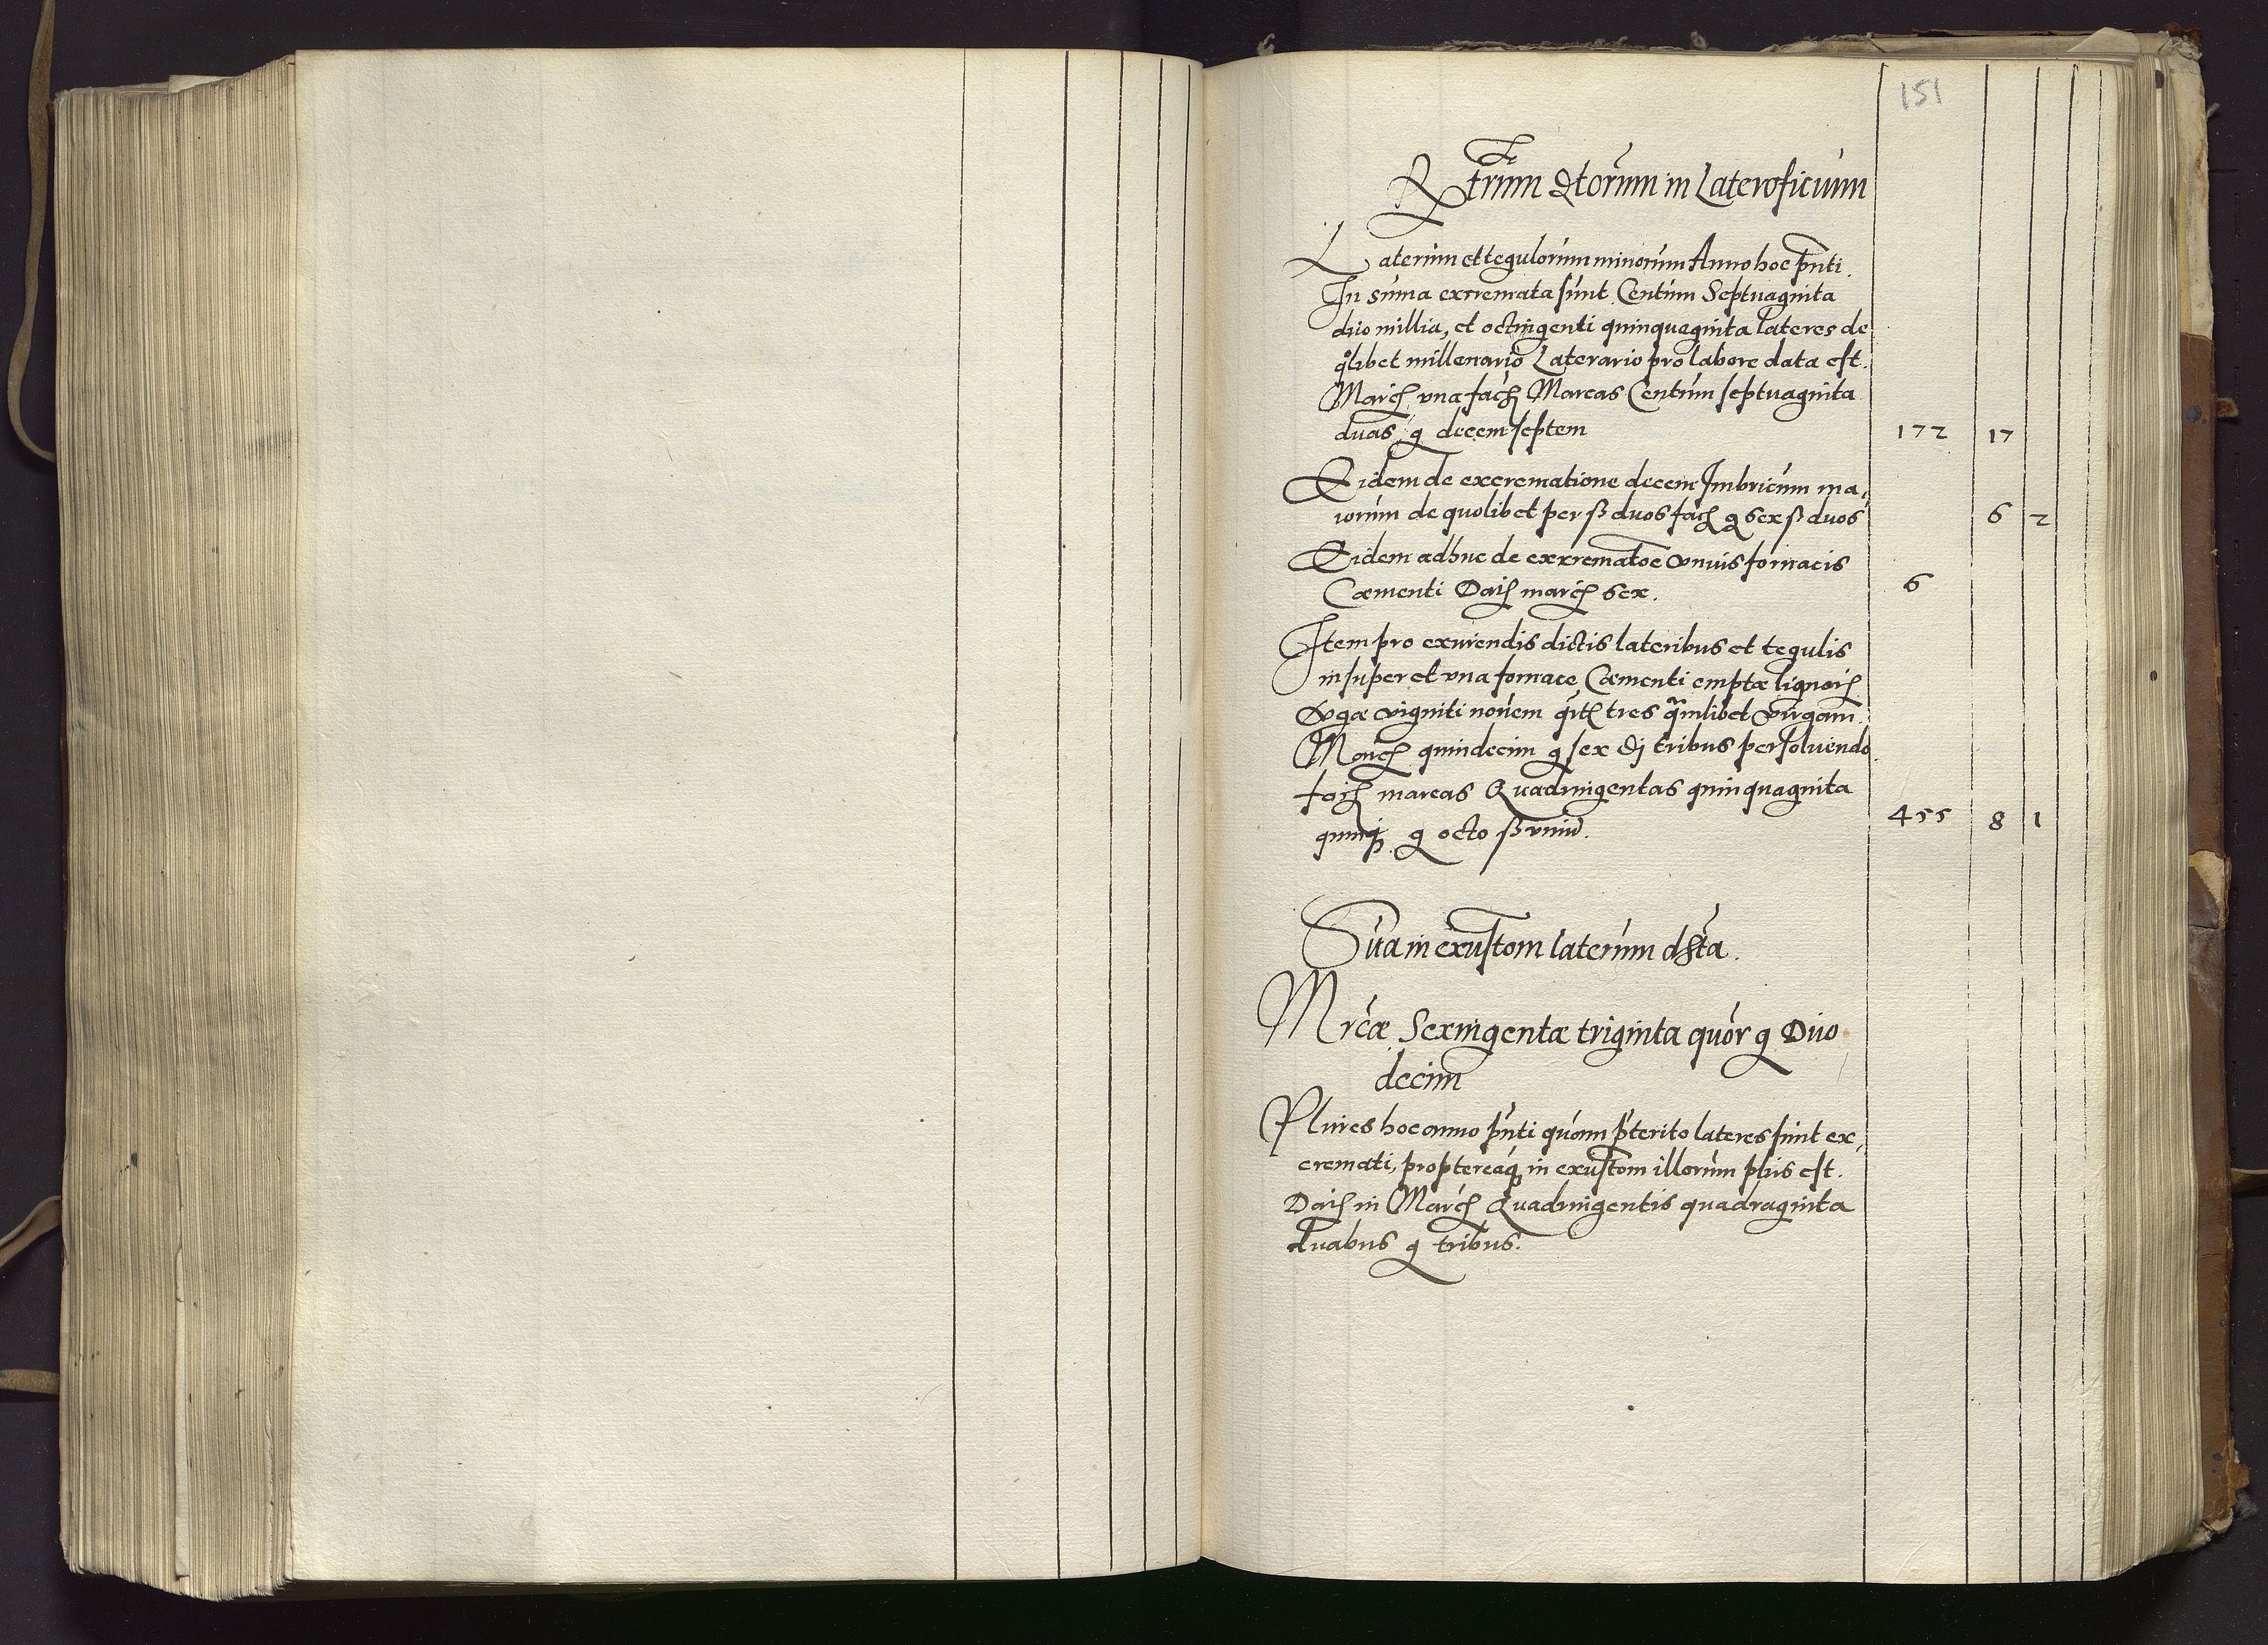 151
Rtrūm Dtorum in Lateroficium
Laterum et tegulorum minorum Anno hoc pn̄ti.
In sum̄a excremata sunt Centum Septuaginta
duo millia, et octingenti quinquaginta lateres de
qolibet millenario Laterario pro labore data est.
March una fach Marcas Centum septuaginta
duas, g decem septem 172 17
Eidem de excrematione decem Imbricum ma,
iorum de quolibet per ß duos fach g sex ß duos 6 2
Eidem adhuc de excrematōe vnius fornacis
Cæmenti Dath march sex. 6
Item pro exurendis dictis lateribus et tegulis
insuper et vna fornace Cæmenti emptæ lignorh
vgæ viginti novem tres quamlibet virgam.
March quindecim g sex Dj tribus persoluendo
fach marcas Quadringentas quinquaginta
quinq g octo ß vnū. 455 8 1
Sūa in exustōm laterum dista.
Mrcæ Sexingentæ triginta quor g Duo
decim
Plures hoc anno pn̄ti quam pterito lateres sunt ex,
cremati, proptereaq in exustōm illorum plus est.
Dath in March Quadringentis quadraginta
duabus g tribus.